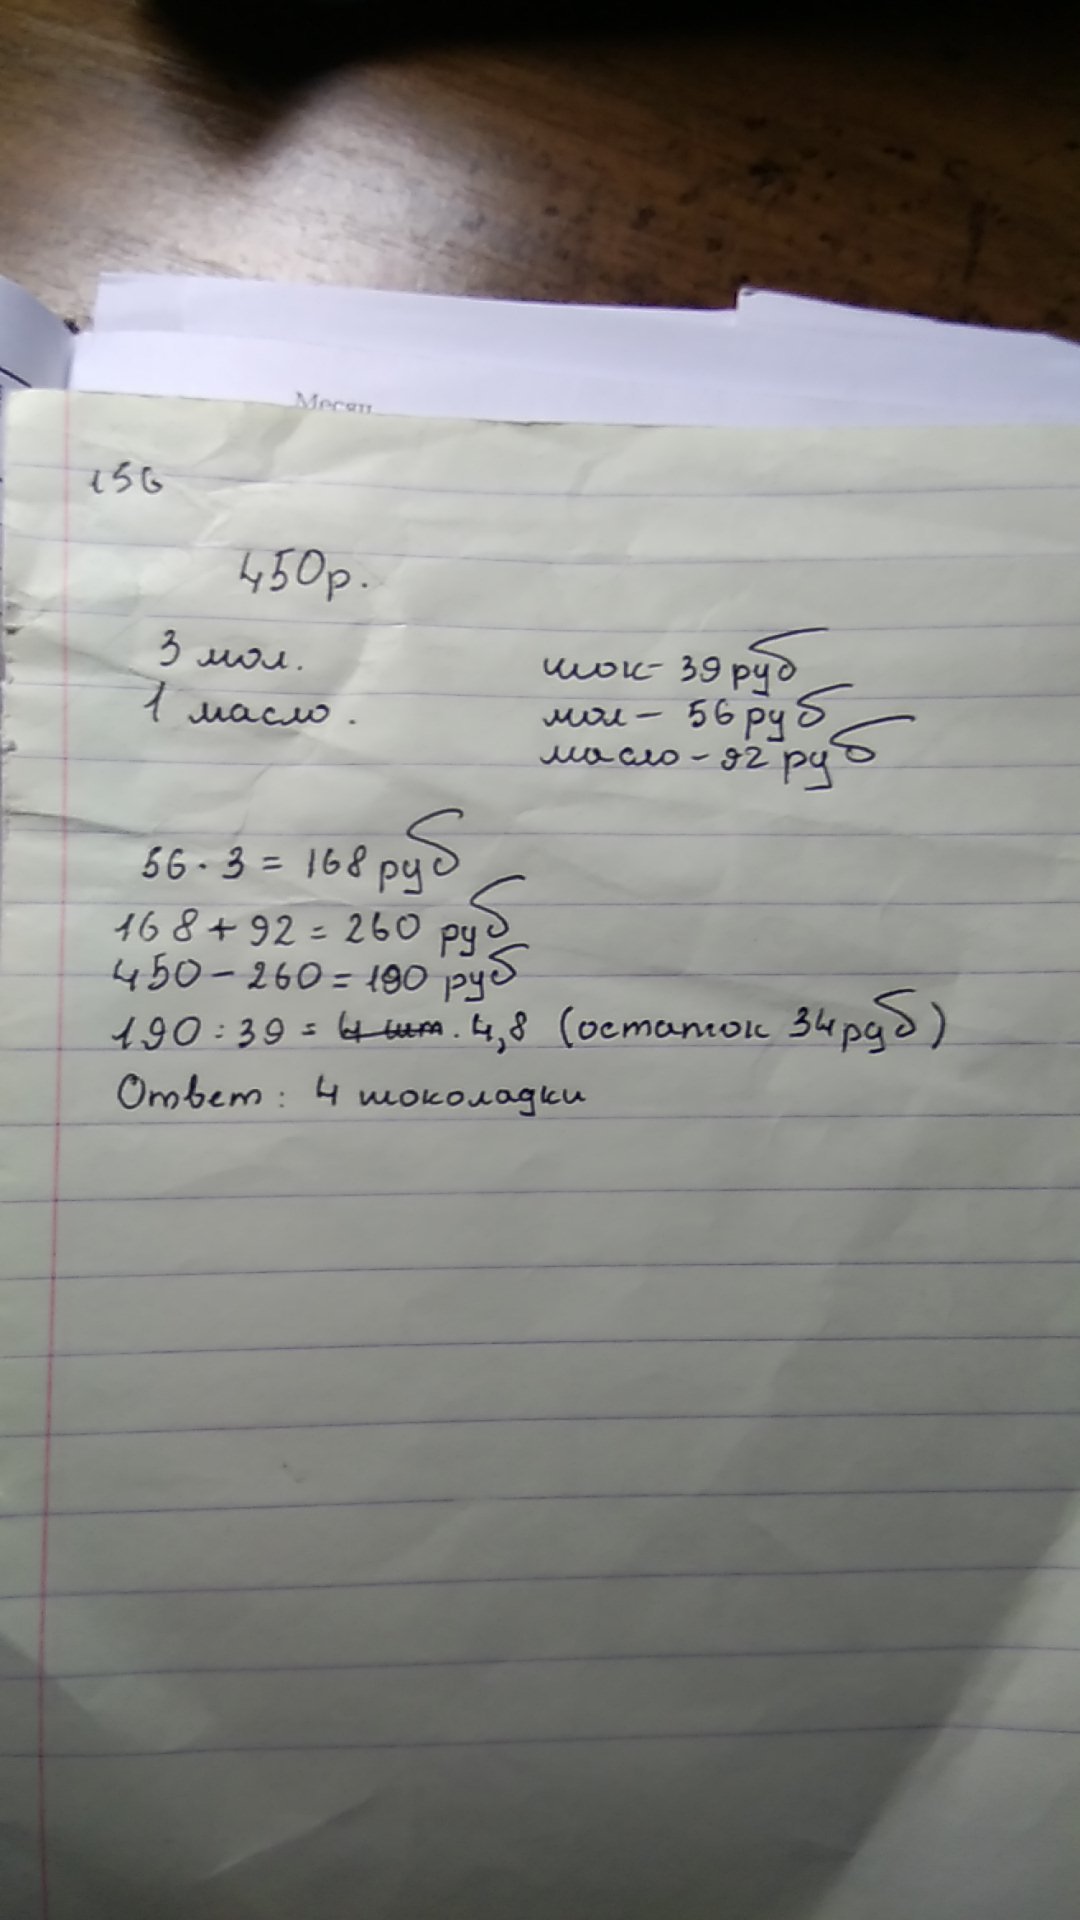 Месяц
156
450р.
3 мол.
1 масло.
шок- 39 руб
мол - 56 руб
масло - 92 руб
56 · 3 = 168 руб
168 + 92 = 260 руб
450 - 260 = 190 руб
190 : 39 = 4 шт. 4,8 (остаток 34 руб)
Ответ: 4 шоколадки